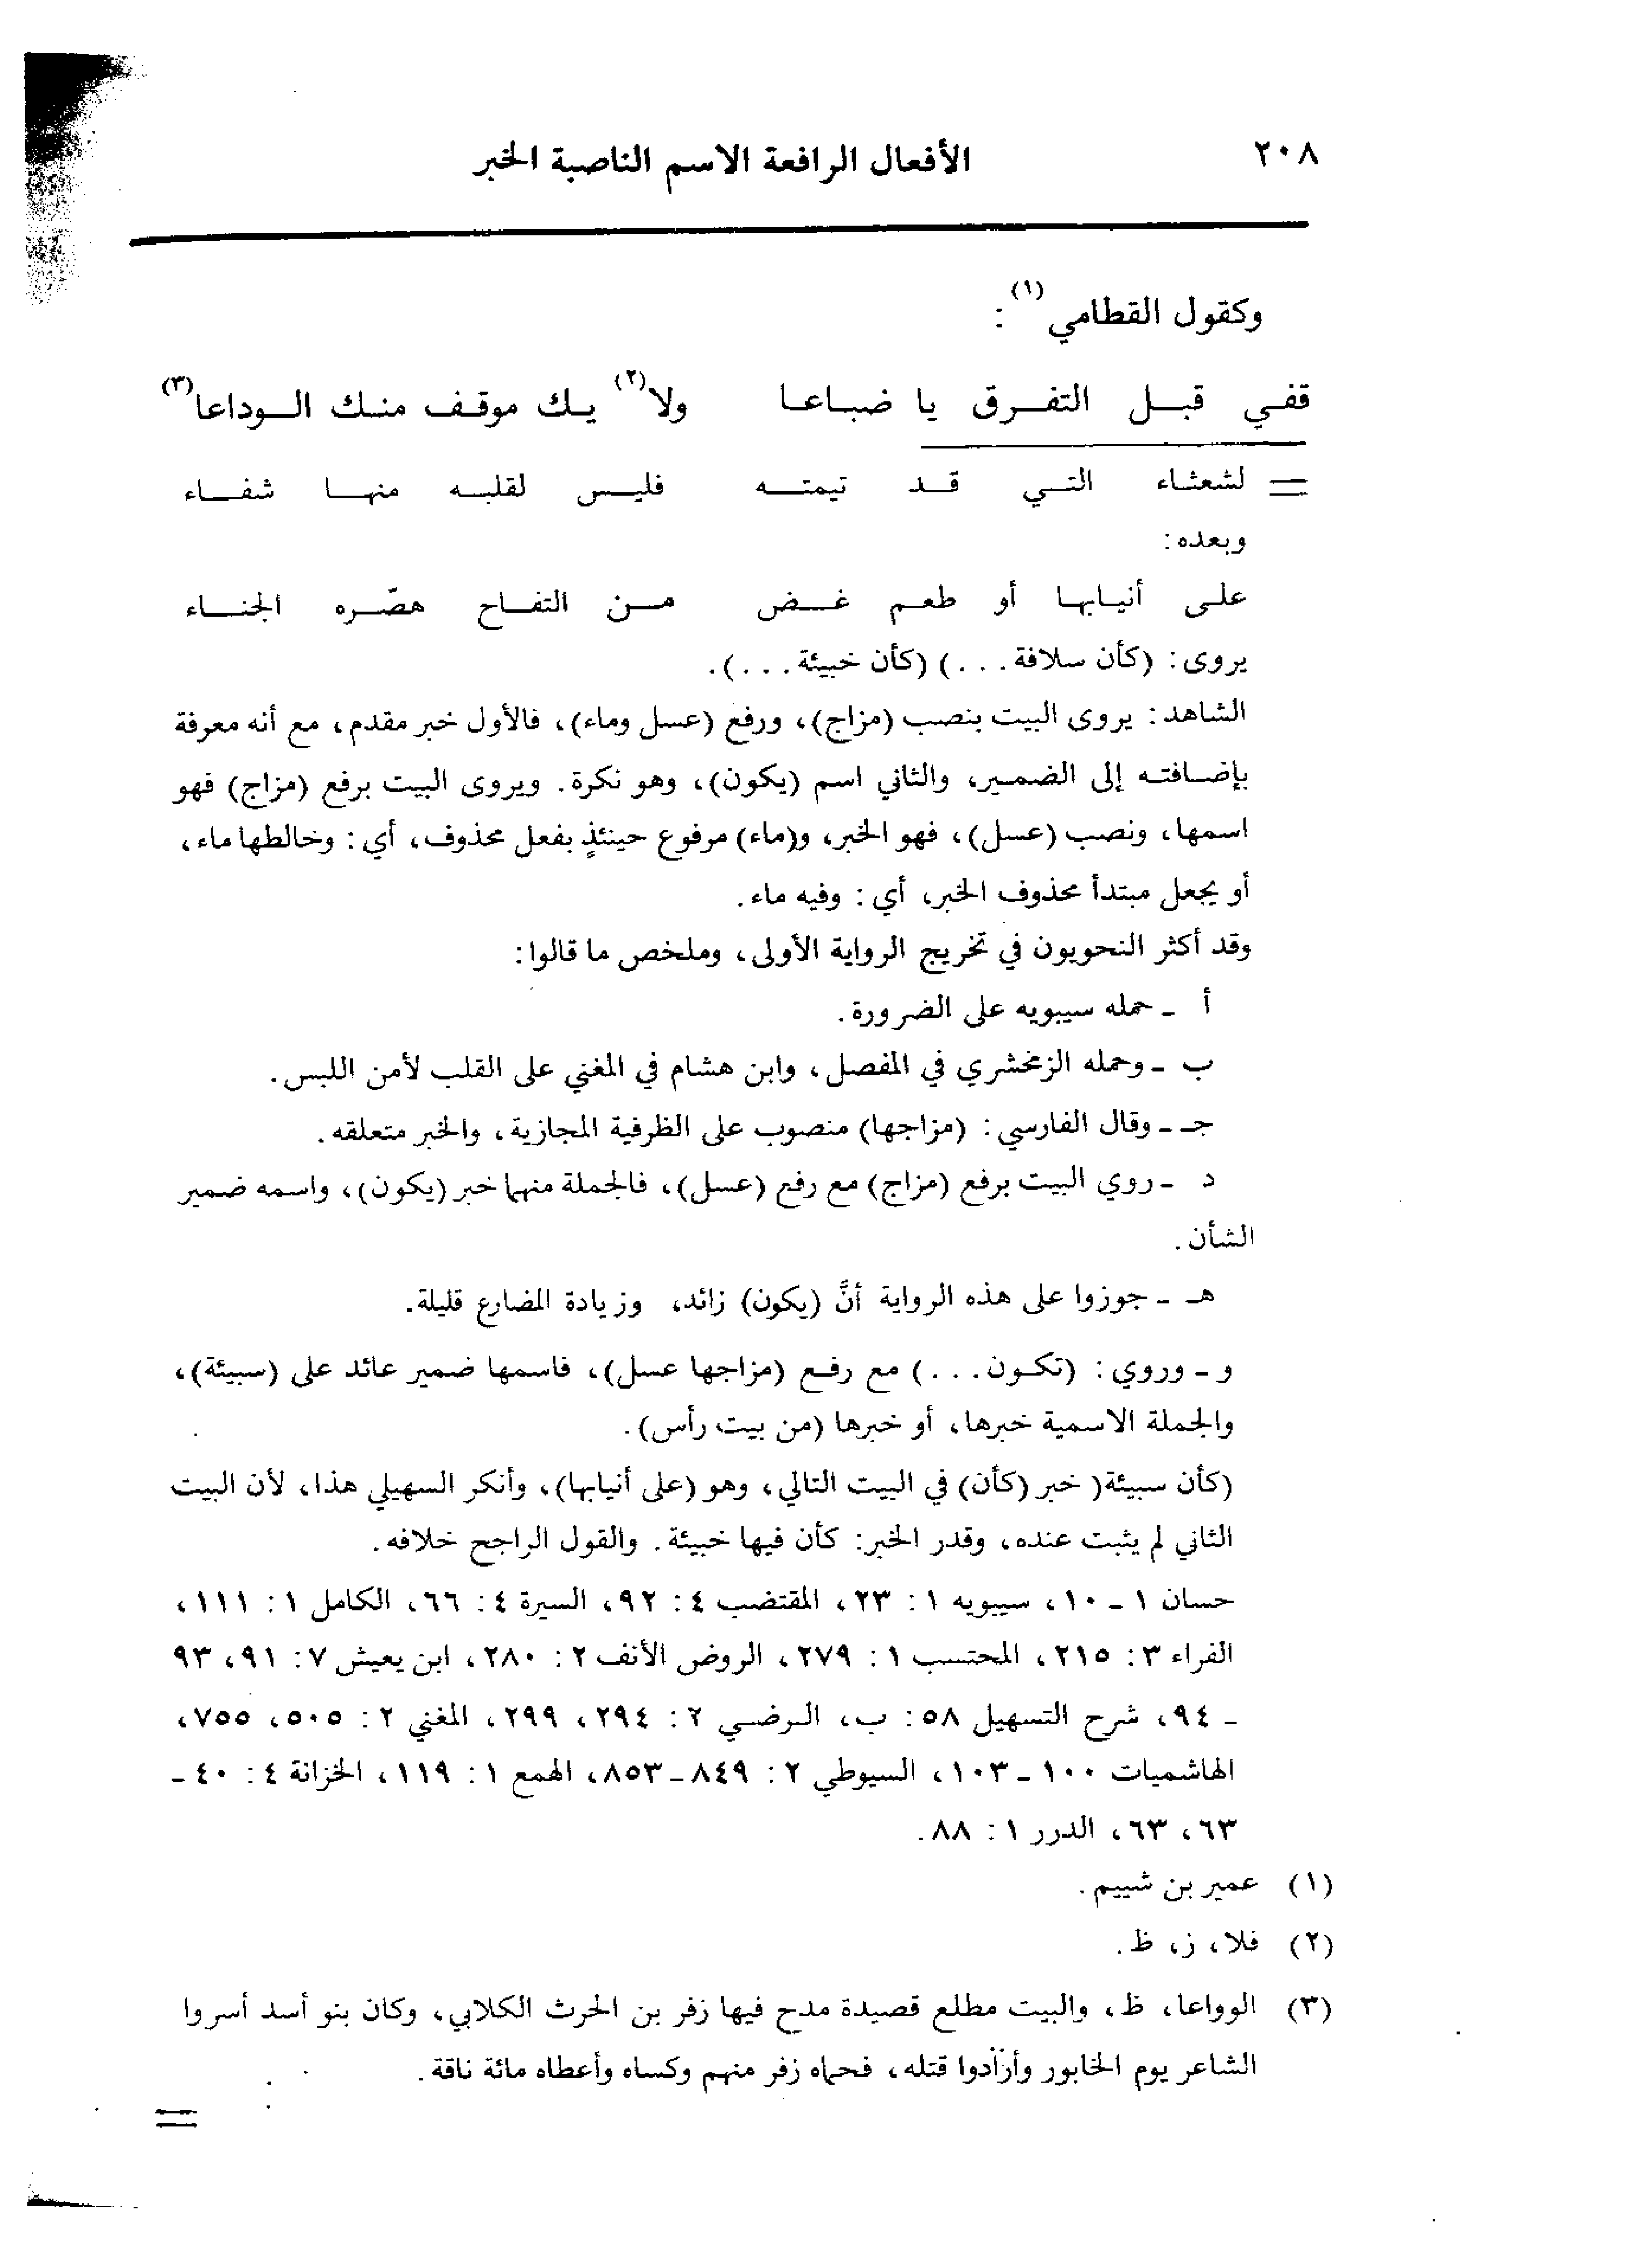 ٢٠٨
الأفعال الرافعة الاسم الناصبة الخبر
وكقول القطامي(١):
قفي قبل التفرق يا ضباعا ولا(٢) يك موقف منك الوداعا(٣)
= لشعثاء التي قد تيمته فليس لقلبه منها شفاء
وبعده:
على أنيابها أو طعم غض من التفاح هصّره الجناء
يروى: (كأن سلافة...) (كأن خبيئة...).
الشاهد: يروى البيت بنصب (مزاج)، ورفع (عسل وماء)، فالأول خبر مقدم، مع أنه معرفة
بإضافته إلى الضمير، والثاني اسم (يكون)، وهو نكرة. ويروى البيت برفع (مزاج) فهو
اسمها، ونصب (عسل)، فهو الخبر، و(ماء) مرفوع حينئذٍ بفعل محذوف، أي: وخالطها ماء،
أو يجعل مبتدأ محذوف الخبر، أي: وفيه ماء.
وقد أكثر النحويون في تخريج الرواية الأولى، وملخص ما قالوا:
أ - حمله سيبويه على الضرورة.
ب - وحمله الزمخشري في المفصل، وابن هشام في المغني على القلب لأمن اللبس.
جـ - وقال الفارسي: (مزاجها) منصوب على الظرفية المجازية، والخبر متعلقه.
د - روي البيت برفع (مزاج) مع رفع (عسل)، فالجملة منهما خبر (يكون)، واسمه ضمير
الشأن.
هـ - جوزوا على هذه الرواية أنَّ (يكون) زائد، وزيادة المضارع قليلة.
و - وروي: (تكون...) مع رفع (مزاجها عسل)، فاسمها ضمير عائد على (سبيئة)،
والجملة الاسمية خبرها، أو خبرها (من بيت رأس).
(كأن سبيئة( خبر (كأن) في البيت التالي، وهو (على أنيابها)، وأنكر السهيلي هذا، لأن البيت
الثاني لم يثبت عنده، وقدر الخبر: كأن فيها خبيئة. والقول الراجح خلافه.
حسان ١ - ١٠، سيبويه ١: ٢٣، المقتضب ٤: ٩٢، السيرة ٤: ٦٦، الكامل ١: ١١١،
الفراء ٣: ٢١٥، المحتسب ١: ٢٧٩، الروض الأنف ٢: ٢٨٠، ابن يعيش ٧: ٩١، ٩٣
- ٩٤، شرح التسهيل ٥٨: ب، الرضي ٢: ٢٩٤، ٢٩٩، المغني ٢: ٥٠٥، ٧٥٥،
الهاشميات ١٠٠ - ١٠٣، السيوطي ٢: ٨٤٩ - ٨٥٣، الهمع ١: ١١٩، الخزانة ٤: ٤٠ -
٦٣، ٦٣، الدرر ١: ٨٨.
(١) عمير بن شييم.
(٢) فلا، ز، ظ.
(٣) الوواعا، ظ، والبيت مطلع قصيدة مدح فيها زفر بن الحرث الكلابي، وكان بنو أسد أسروا
الشاعر يوم الخابور وأرادوا قتله، فحماه زفر منهم وكساه وأعطاه مائة ناقة.
=